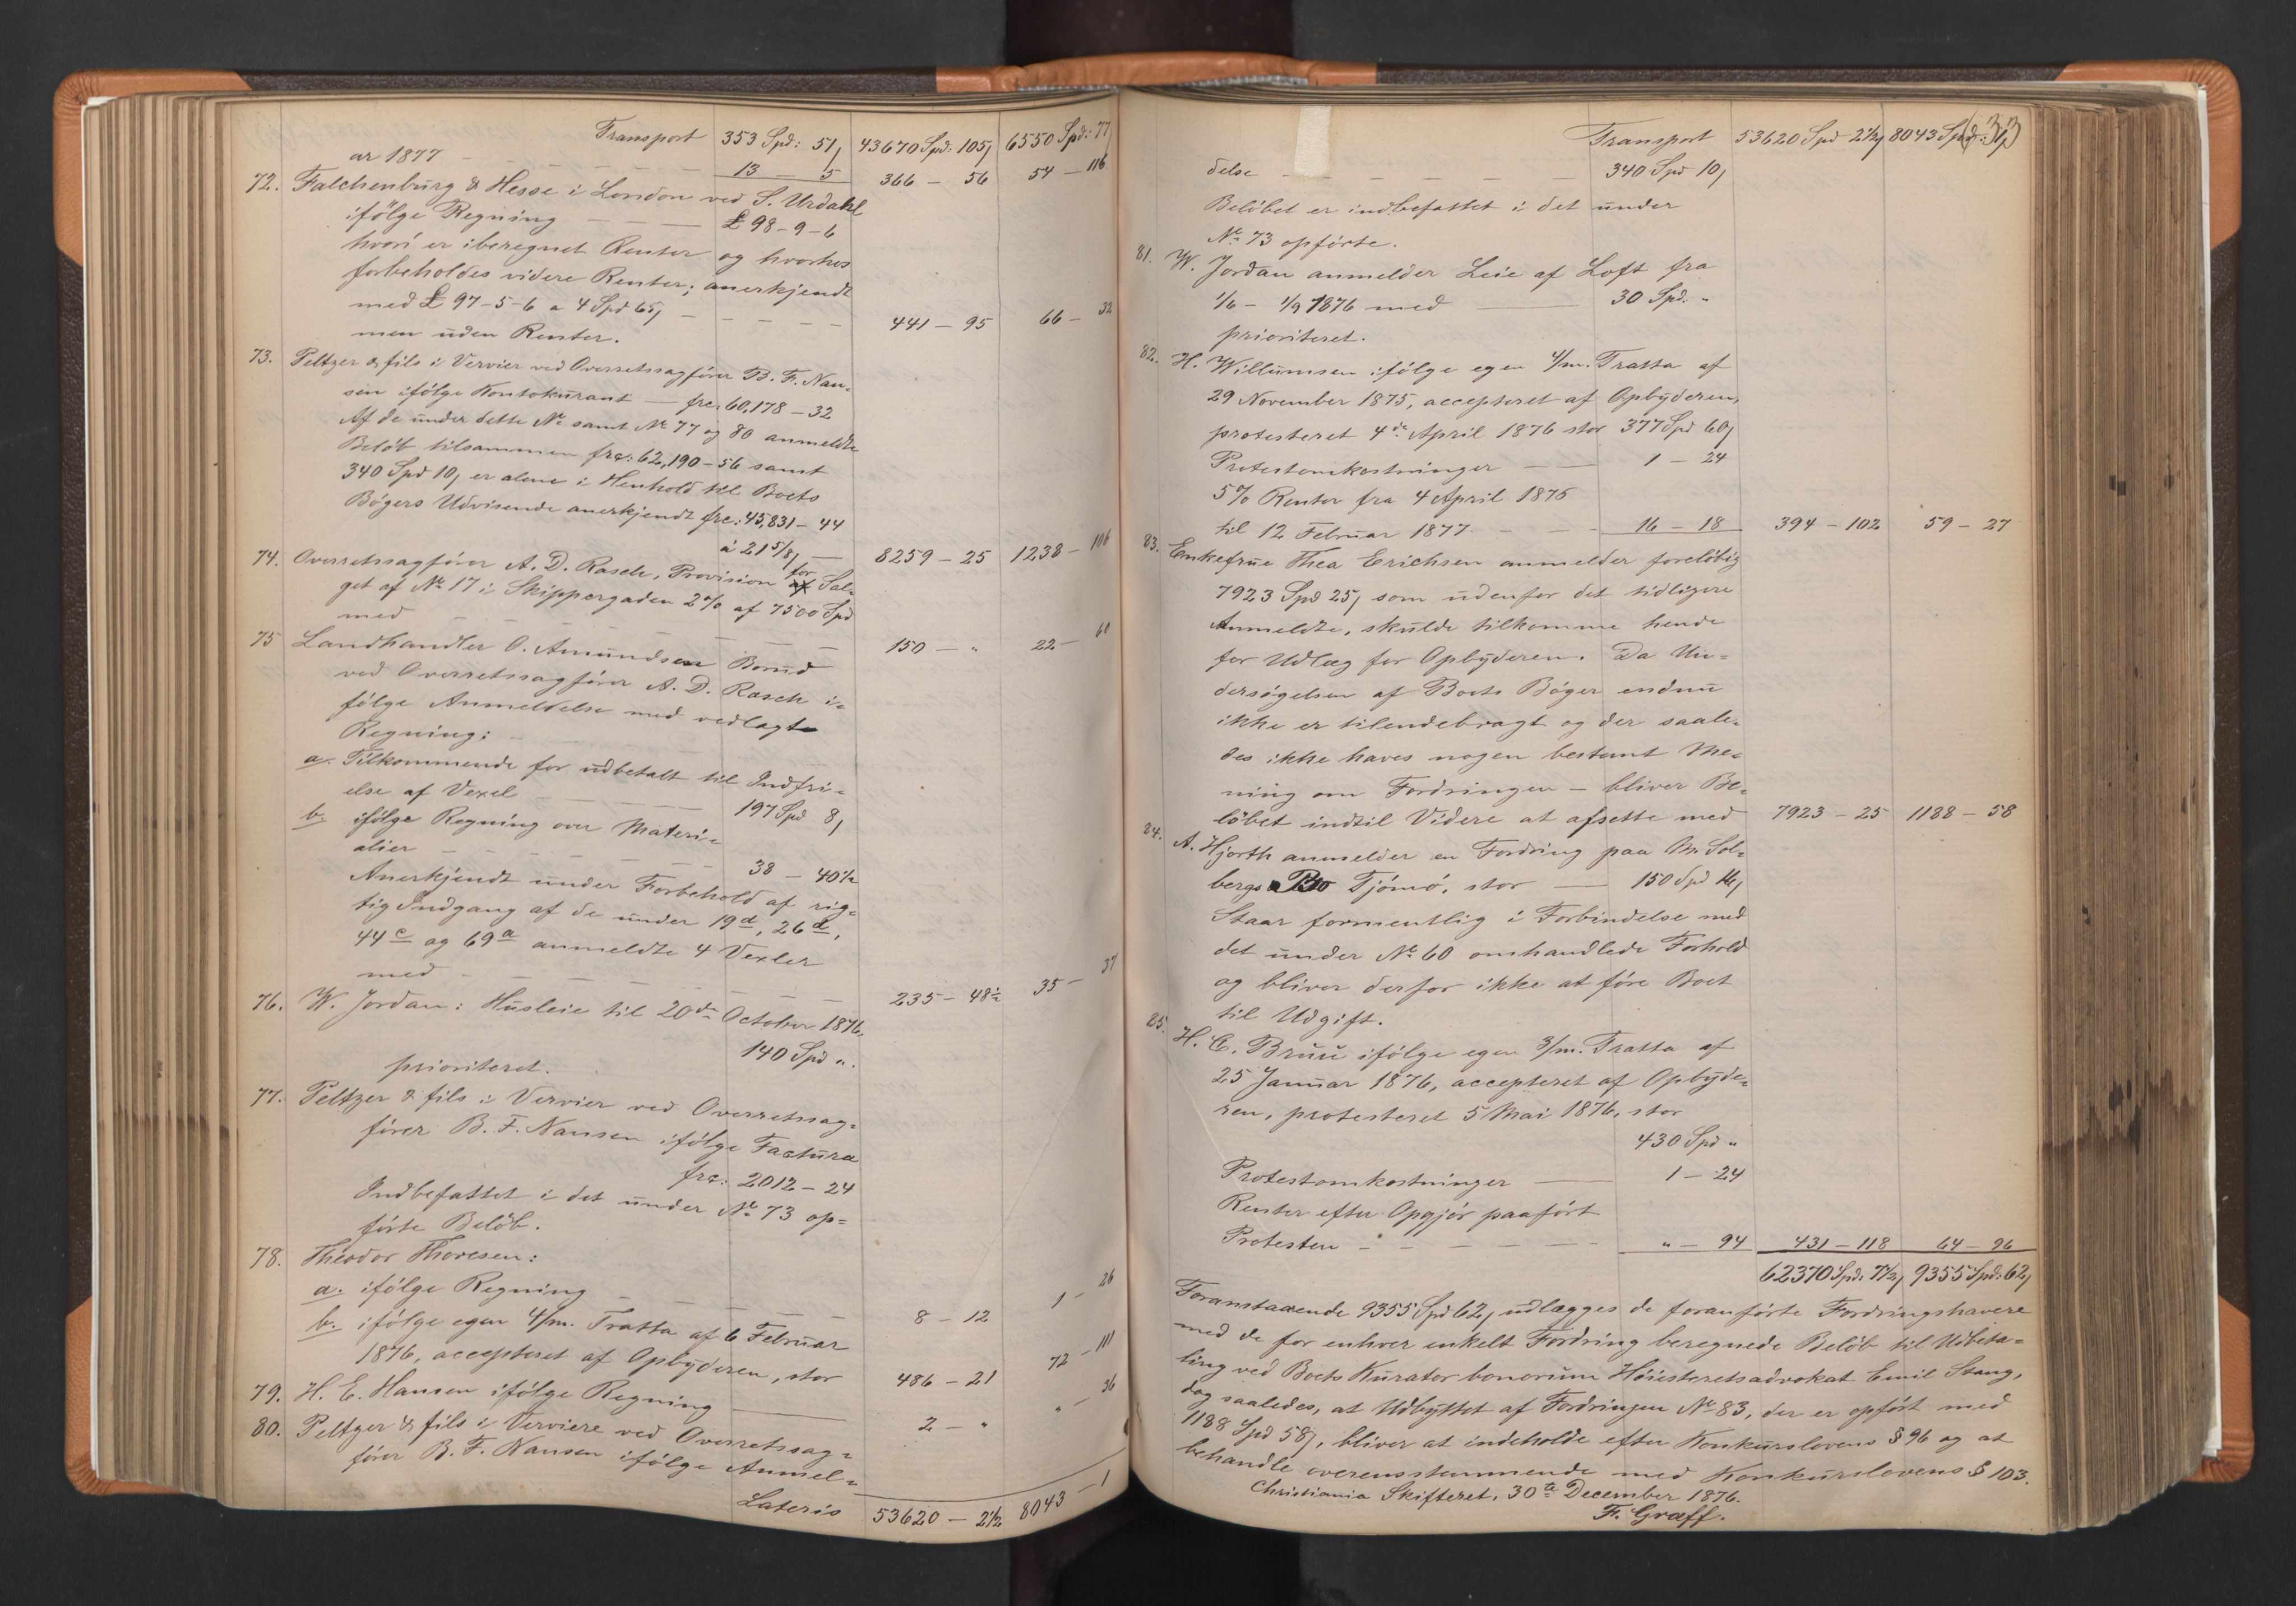 Transport 353 Spd: 51, 43670 Spd: 105, 6550 Spd: 77
ar 1877 — 13 — 5 366 — 56 54 — 116
72. Falchenburg & Hesse i London ved S. Urdahl
ifölge Regning — £ 98-9-6
hvori er iberegnet Renter og hvorhos
forbeholdes videre Renter; anerkjendt
med £ 97-5-6 a 4 Spd 65, — 441 — 95 66 — 32
men uden Renter.
73. Peltzer & fils i Vervier ved Overretssagförer B. F. Nan-
sen ifölge Kontokurant — frc: 60,178-32
Af de under dette No samt No 77 og 80 anmeldte
Belöb tilsammen frc: 62,190-56 samt
340 Spd 10, er alene i Henhold til Boets
Bögers Udvisende anerkjendt frc: 45,831-44
à 21 5/8, — 8259 — 25 1238 — 106
74. Overretssagförer A. D. Rasch, Provision for Sal-
get af No 17 i Skippergaden 2% af 7500 Spd
med — 150 — " 22 — 60
75 Landhandler O. Amundsen Borud
ved Overretssagförer A. D. Rasch i-
fölge Anmeldelse med vedlagte
Regning:
a. Tilkommende for udbetalt til Indfri-
else af Vexel — 197 Spd 8,
b. ifölge Regning over Materi-
alier — 38 — 40½
Anerkjendt under Forbehold af rig-
tig Indgang af de under 19d, 26d,
44c og 69a anmeldte 4 Vexler
med — 235 — 48½ 35 — 37
76. W. Jordan: Husleie til 20de October 1876,
140 Spd ".
prioriteret.
77. Peltzer & fils i Vervier ved Overretssag-
förer B. F. Nansen ifölge Factura
frc: 2012-24
Indbefattet i det under No 73 op-
förte Belöb.
78. Theodor Thoresen:
a. ifölge Regning — 8 — 12 1 — 26
b. ifölge egen 4/m. Tratta af 6 Februar
1876, accepteret af Opbyderen, stor 486 — 21 72 — 111
79. H. E. Hansen ifölge Regning — 2 — " " — 36
80. Peltzer & fils i Verviere ved Overretssag-
förer B. F. Nansen ifölge Anmel-
Lateris 53620 — 2½ 8043 — 1
Transport 53620 Spd 2½, 8043 Spd: 1,
delse — 340 Spd 10,
Belöbet er indbefattet i det under
No 73 opförte.
81. W. Jordan anmelder Leie af Loft fra
1/6 - 1/9 1876 med — 30 Spd. "
prioriteret.
82. H. Willumsen ifölge egen 4/m. Tratta af
29 November 1875, accepteret af Opbyderen,
protesteret 4de April 1876 stor 377 Spd 60,
Protestomkostninger — 1 — 24
5% Renter fra 4 April 1876
til 12 Februar 1877 — 16 — 18 394 — 102 59 — 27
83. Enkefrue Thea Erichsen anmelder foreløbig
7923 Spd 25, som udenfor det tidligere
Anmeldte, skulde tilkomme hende
for Udlæg for Opbyderen. Da Un-
dersøgelsen af Boets Böger endnu
ikke er tilendebragt og der saale-
des ikke haves nogen bestemt Me-
ning om Fordringen — bliver Be-
löbet indtil Videre at afsette med 7923 — 25 1188 — 58
84. A. Hjorth anmelder en Fordring paa M. Sol-
bergs Bo Tjömö, stor — 150 Spd 14,
Staar formentlig i Forbindelse med
det under No 60 omhandlede Forhold
og bliver derfor ikke at före Boet
til Udgift.
85. H. C. Bruu ifölge egen 3/m. Tratta af
25 Januar 1876, accepteret af Opbyde-
ren, protesteret 5 Mai 1876, stor
430 Spd "
Protestomkostninger — 1 — 24
Renter efter Opgjör paafört
Protesten — " — 94 431 — 118 64 — 96
62370 Spd: 7½, 9355 Spd: 62,
Foranstaaende 9355 Spd 62, udlægges de foranförte Fordringshavere
med de for enhver enkelt Fordring beregnede Belöb til Udbeta-
ling ved Boets Kurator bonorum Höiesteretsadvokat Emil Stang,
dog saaledes, at Udbyttet af Fordringen No 83, der er opfört med
1188 Spd 58, bliver at indeholde efter Konkurslovens § 96 og at
behandle overensstemmende med Konkurslovens § 103.
Christiania Skifteret, 30te December 1876.
F. Græff.